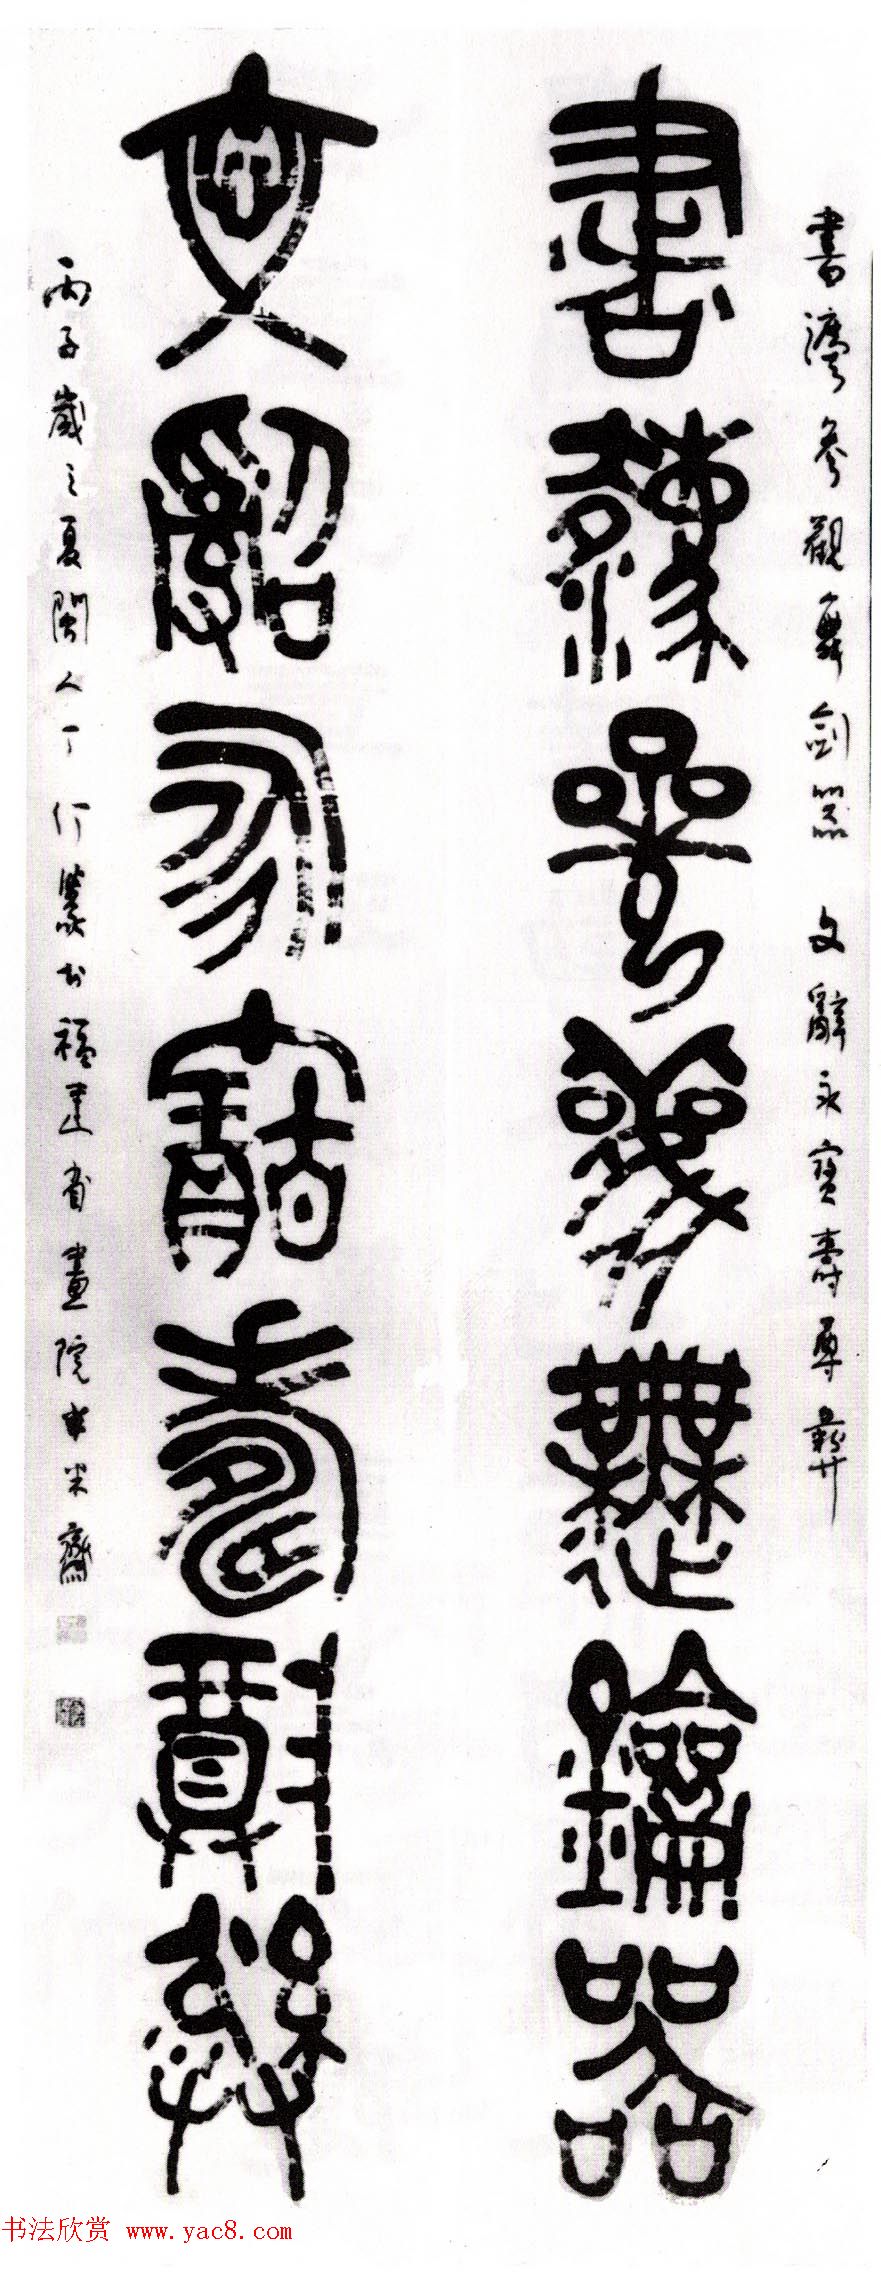 書灋參觀舞劍器 文辭永寶壽尊彝
書灋參觀舞劍器
文辭永寶壽尊彝
丙子歲之夏閩人丁仃篆於福建省畫院米齋
书法欣赏 www.yac8.com